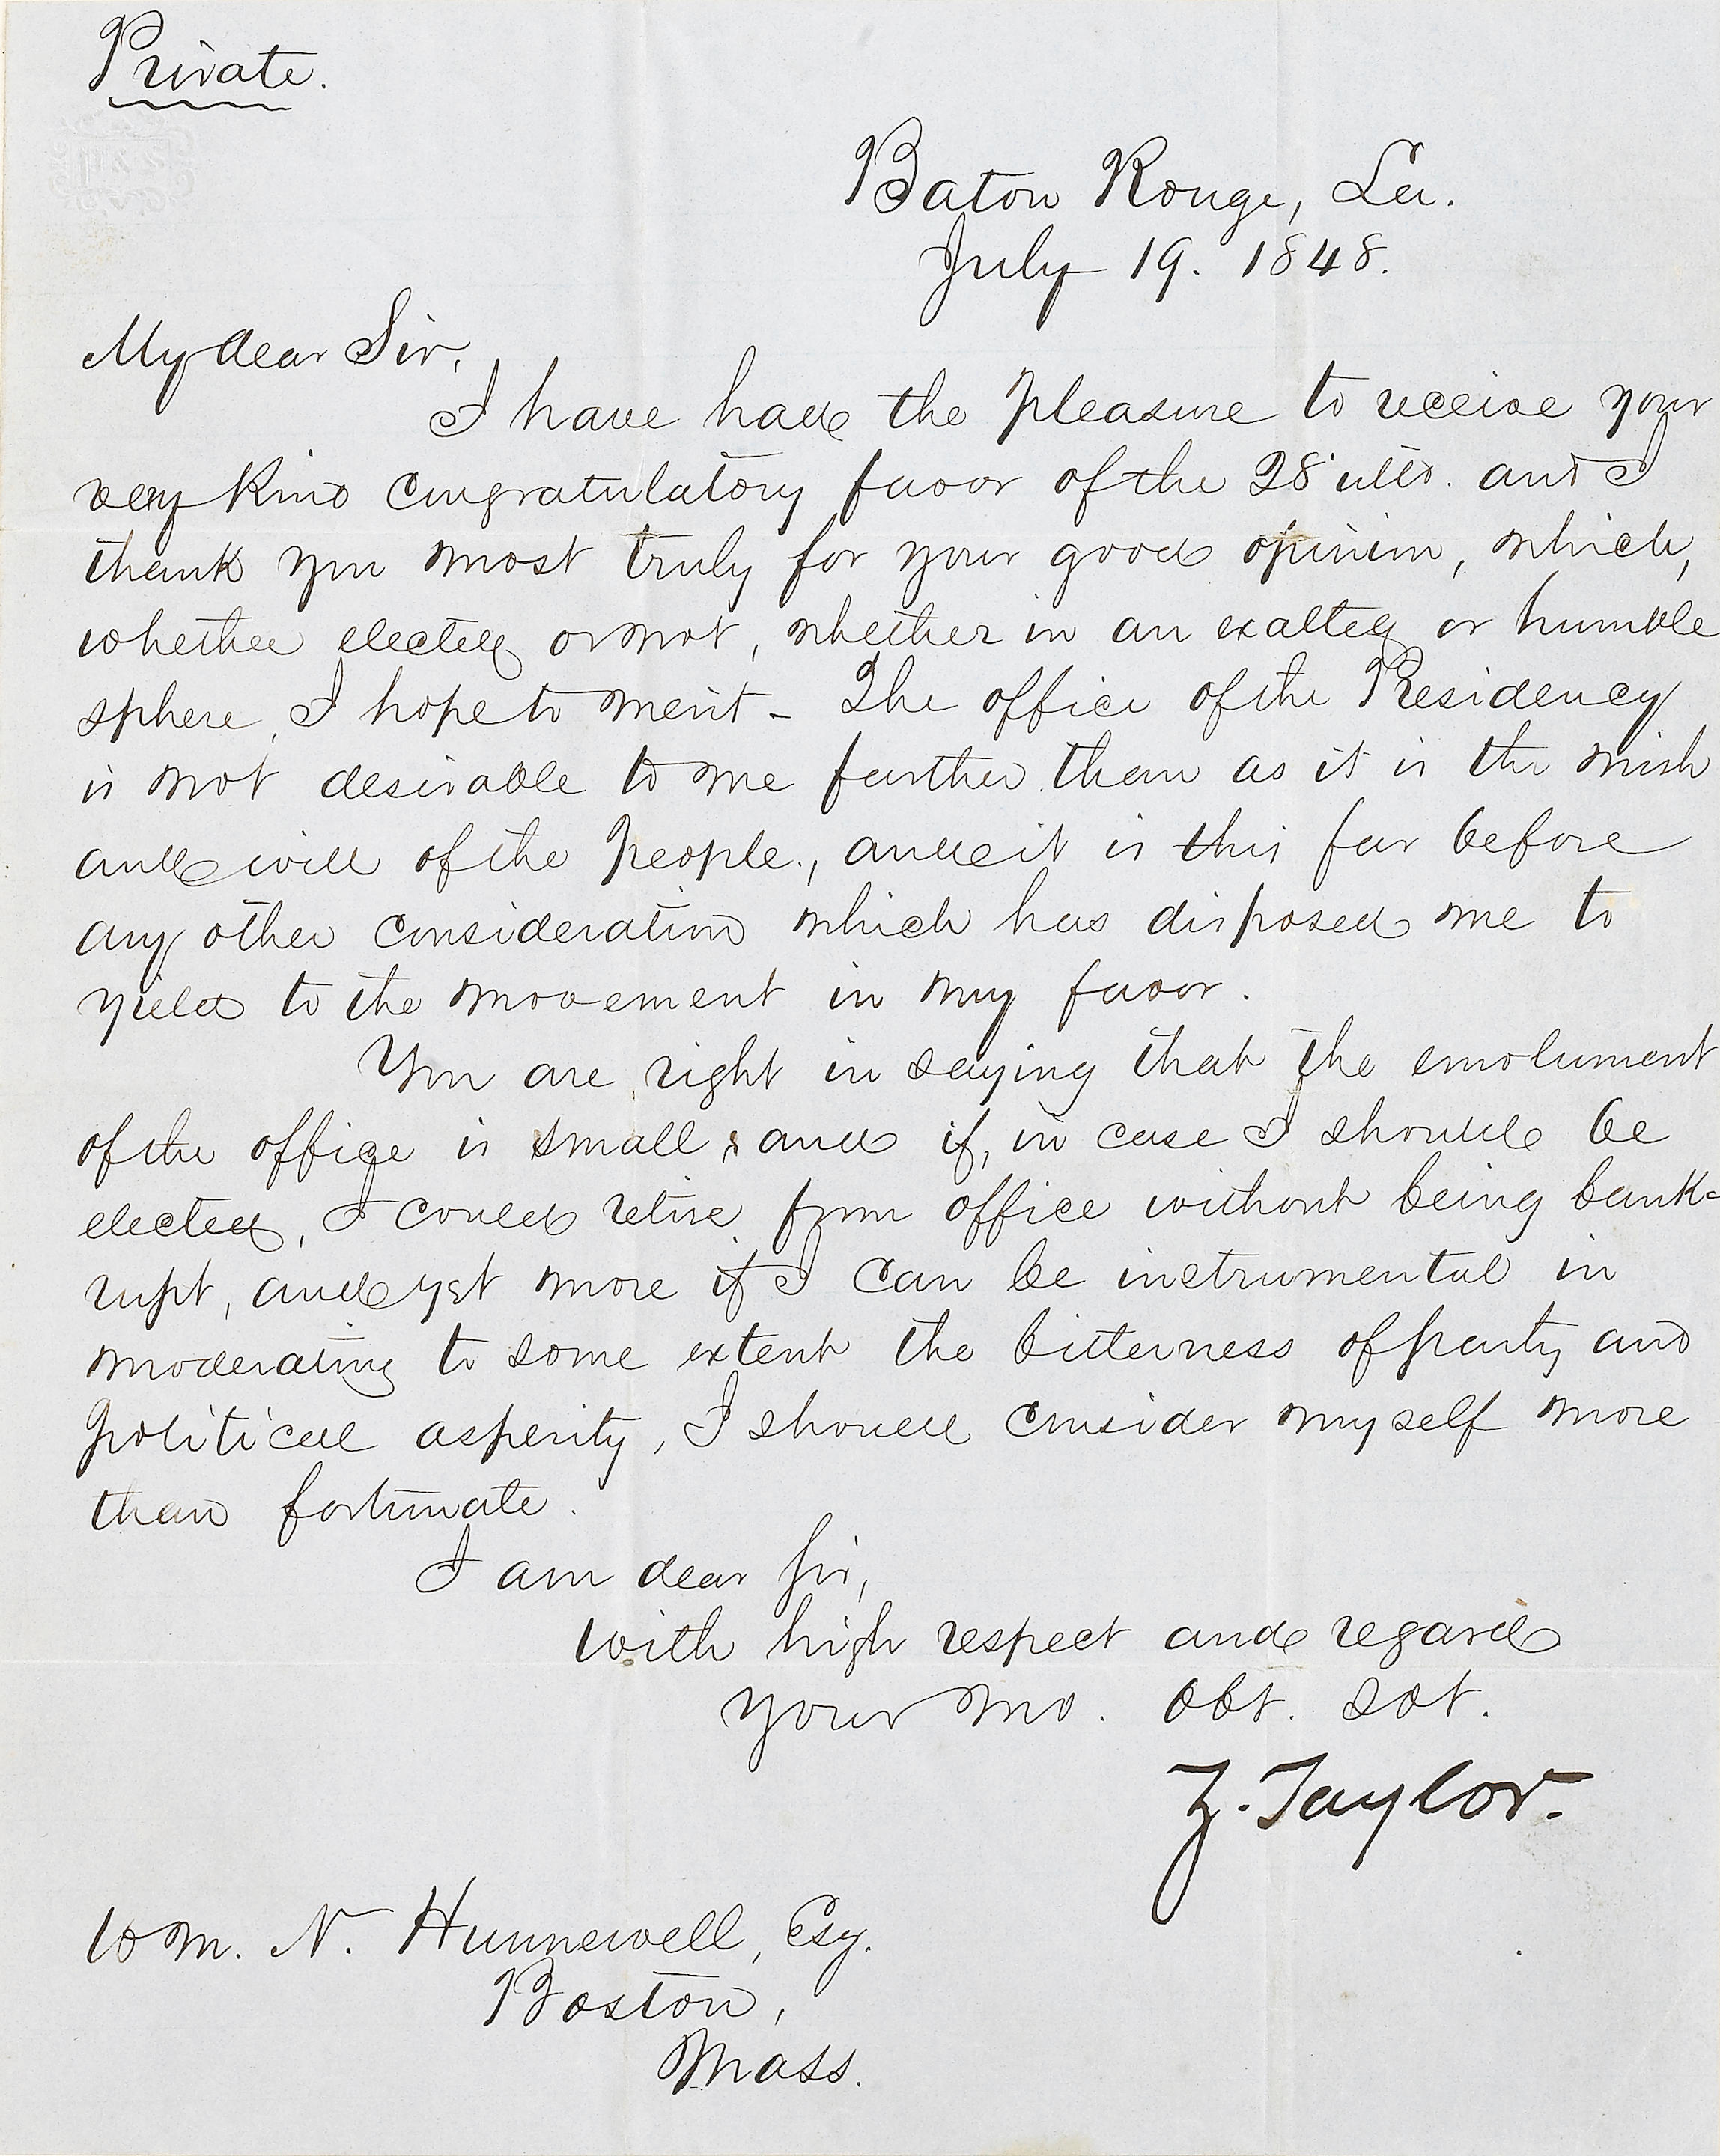 Private.
Baton Rouge, La.
July 19. 1848.
My dear Sir,
I have had the pleasure to receive your
very kind congratulatory favor of the 28 ulto. and I
thank you most truly for your good opinion, which,
whether elected or not, whether in an exalted or humble
sphere, I hope to merit - The office of the Presidency
is not desirable to me further than as it is the wish
and will of the People, and it is this far before
any other consideration which has disposed me to
yield to the movement in my favor.
You are right in saying that the emolument
of the office is small; and if, in case I should be
elected, I could retire from office without being bank-
rupt, and yet more if I can be instrumental in
moderating to some extent the bitterness of party and
political asperity, I should consider myself more
than fortunate.
I am dear Sir,
with high respect and regard
your mo. obt. svt.
Z. Taylor.
Wm. N. Hunnewell, Esq.
Boston,
Mass.